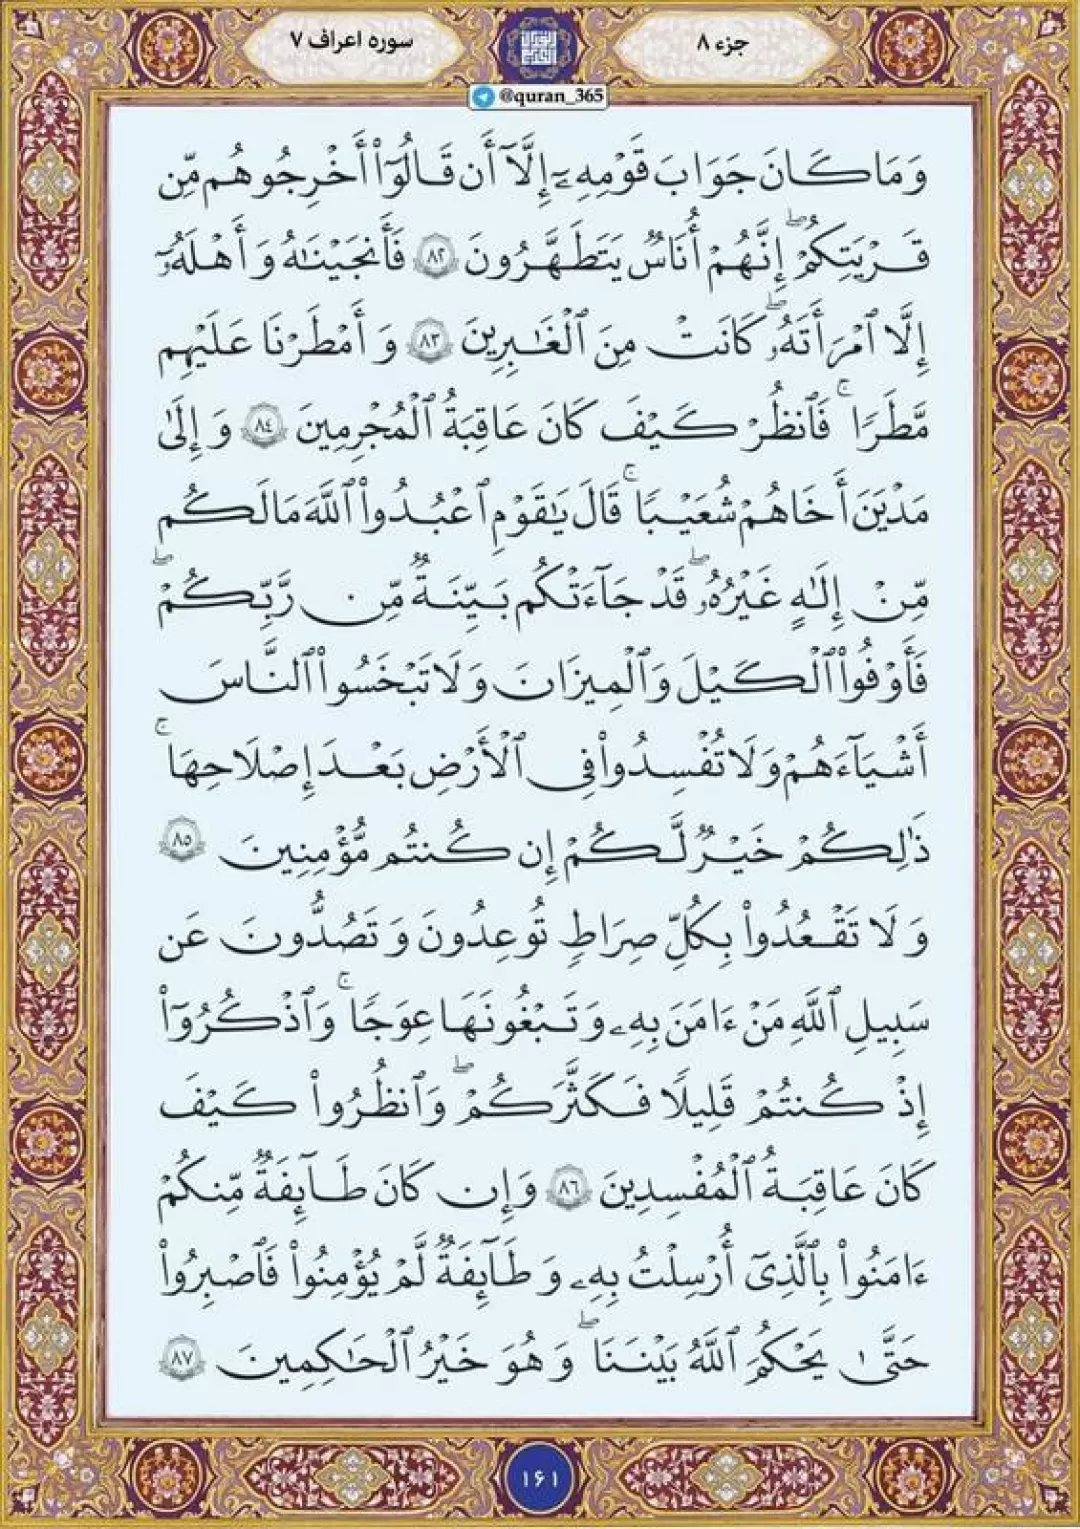 جزء ۸
سوره اعراف ۷
@quran_365
وَمَا كَانَ جَوَابَ قَوْمِهِۦٓ إِلَّآ أَن قَالُوٓا۟ أَخْرِجُوهُم مِّن
قَرْيَتِكُمْ ۖ إِنَّهُمْ أُنَاسٌ يَتَطَهَّرُونَ ٨٢ فَأَنجَيْنَـٰهُ وَأَهْلَهُۥٓ
إِلَّا ٱمْرَأَتَهُۥ كَانَتْ مِنَ ٱلْغَـٰبِرِينَ ٨٣ وَأَمْطَرْنَا عَلَيْهِم
مَّطَرًا ۖ فَٱنظُرْ كَيْفَ كَانَ عَـٰقِبَةُ ٱلْمُجْرِمِينَ ٨٤ وَإِلَىٰ
مَدْيَنَ أَخَاهُمْ شُعَيْبًا ۚ قَالَ يَـٰقَوْمِ ٱعْبُدُوا۟ ٱللَّهَ مَا لَكُم
مِّنْ إِلَـٰهٍ غَيْرُهُۥ ۖ قَدْ جَآءَتْكُم بَيِّنَةٌ مِّن رَّبِّكُمْ ۖ
فَأَوْفُوا۟ ٱلْكَيْلَ وَٱلْمِيزَانَ وَلَا تَبْخَسُوا۟ ٱلنَّاسَ
أَشْيَآءَهُمْ وَلَا تُفْسِدُوا۟ فِى ٱلْأَرْضِ بَعْدَ إِصْلَاحِهَا ۚ
ذَٰلِكُمْ خَيْرٌ لَّكُمْ إِن كُنتُم مُّؤْمِنِينَ ٨٥
وَلَا تَقْعُدُوا۟ بِكُلِّ صِرَاطٍ تُوعِدُونَ وَتَصُدُّونَ عَن
سَبِيلِ ٱللَّهِ مَنْ ءَامَنَ بِهِۦ وَتَبْغُونَهَا عِوَجًا ۚ وَٱذْكُرُوٓا۟
إِذْ كُنتُمْ قَلِيلًا فَكَثَّرَكُمْ ۖ وَٱنظُرُوا۟ كَيْفَ
كَانَ عَـٰقِبَةُ ٱلْمُفْسِدِينَ ٨٦ وَإِن كَانَ طَآئِفَةٌ مِّنكُمْ
ءَامَنُوا۟ بِٱلَّذِىٓ أُرْسِلْتُ بِهِۦ وَطَآئِفَةٌ لَّمْ يُؤْمِنُوا۟ فَٱصْبِرُوا۟
حَتَّىٰ يَحْكُمَ ٱللَّهُ بَيْنَنَا ۖ وَهُوَ خَيْرُ ٱلْحَـٰكِمِينَ ٨٧
۱۶۱